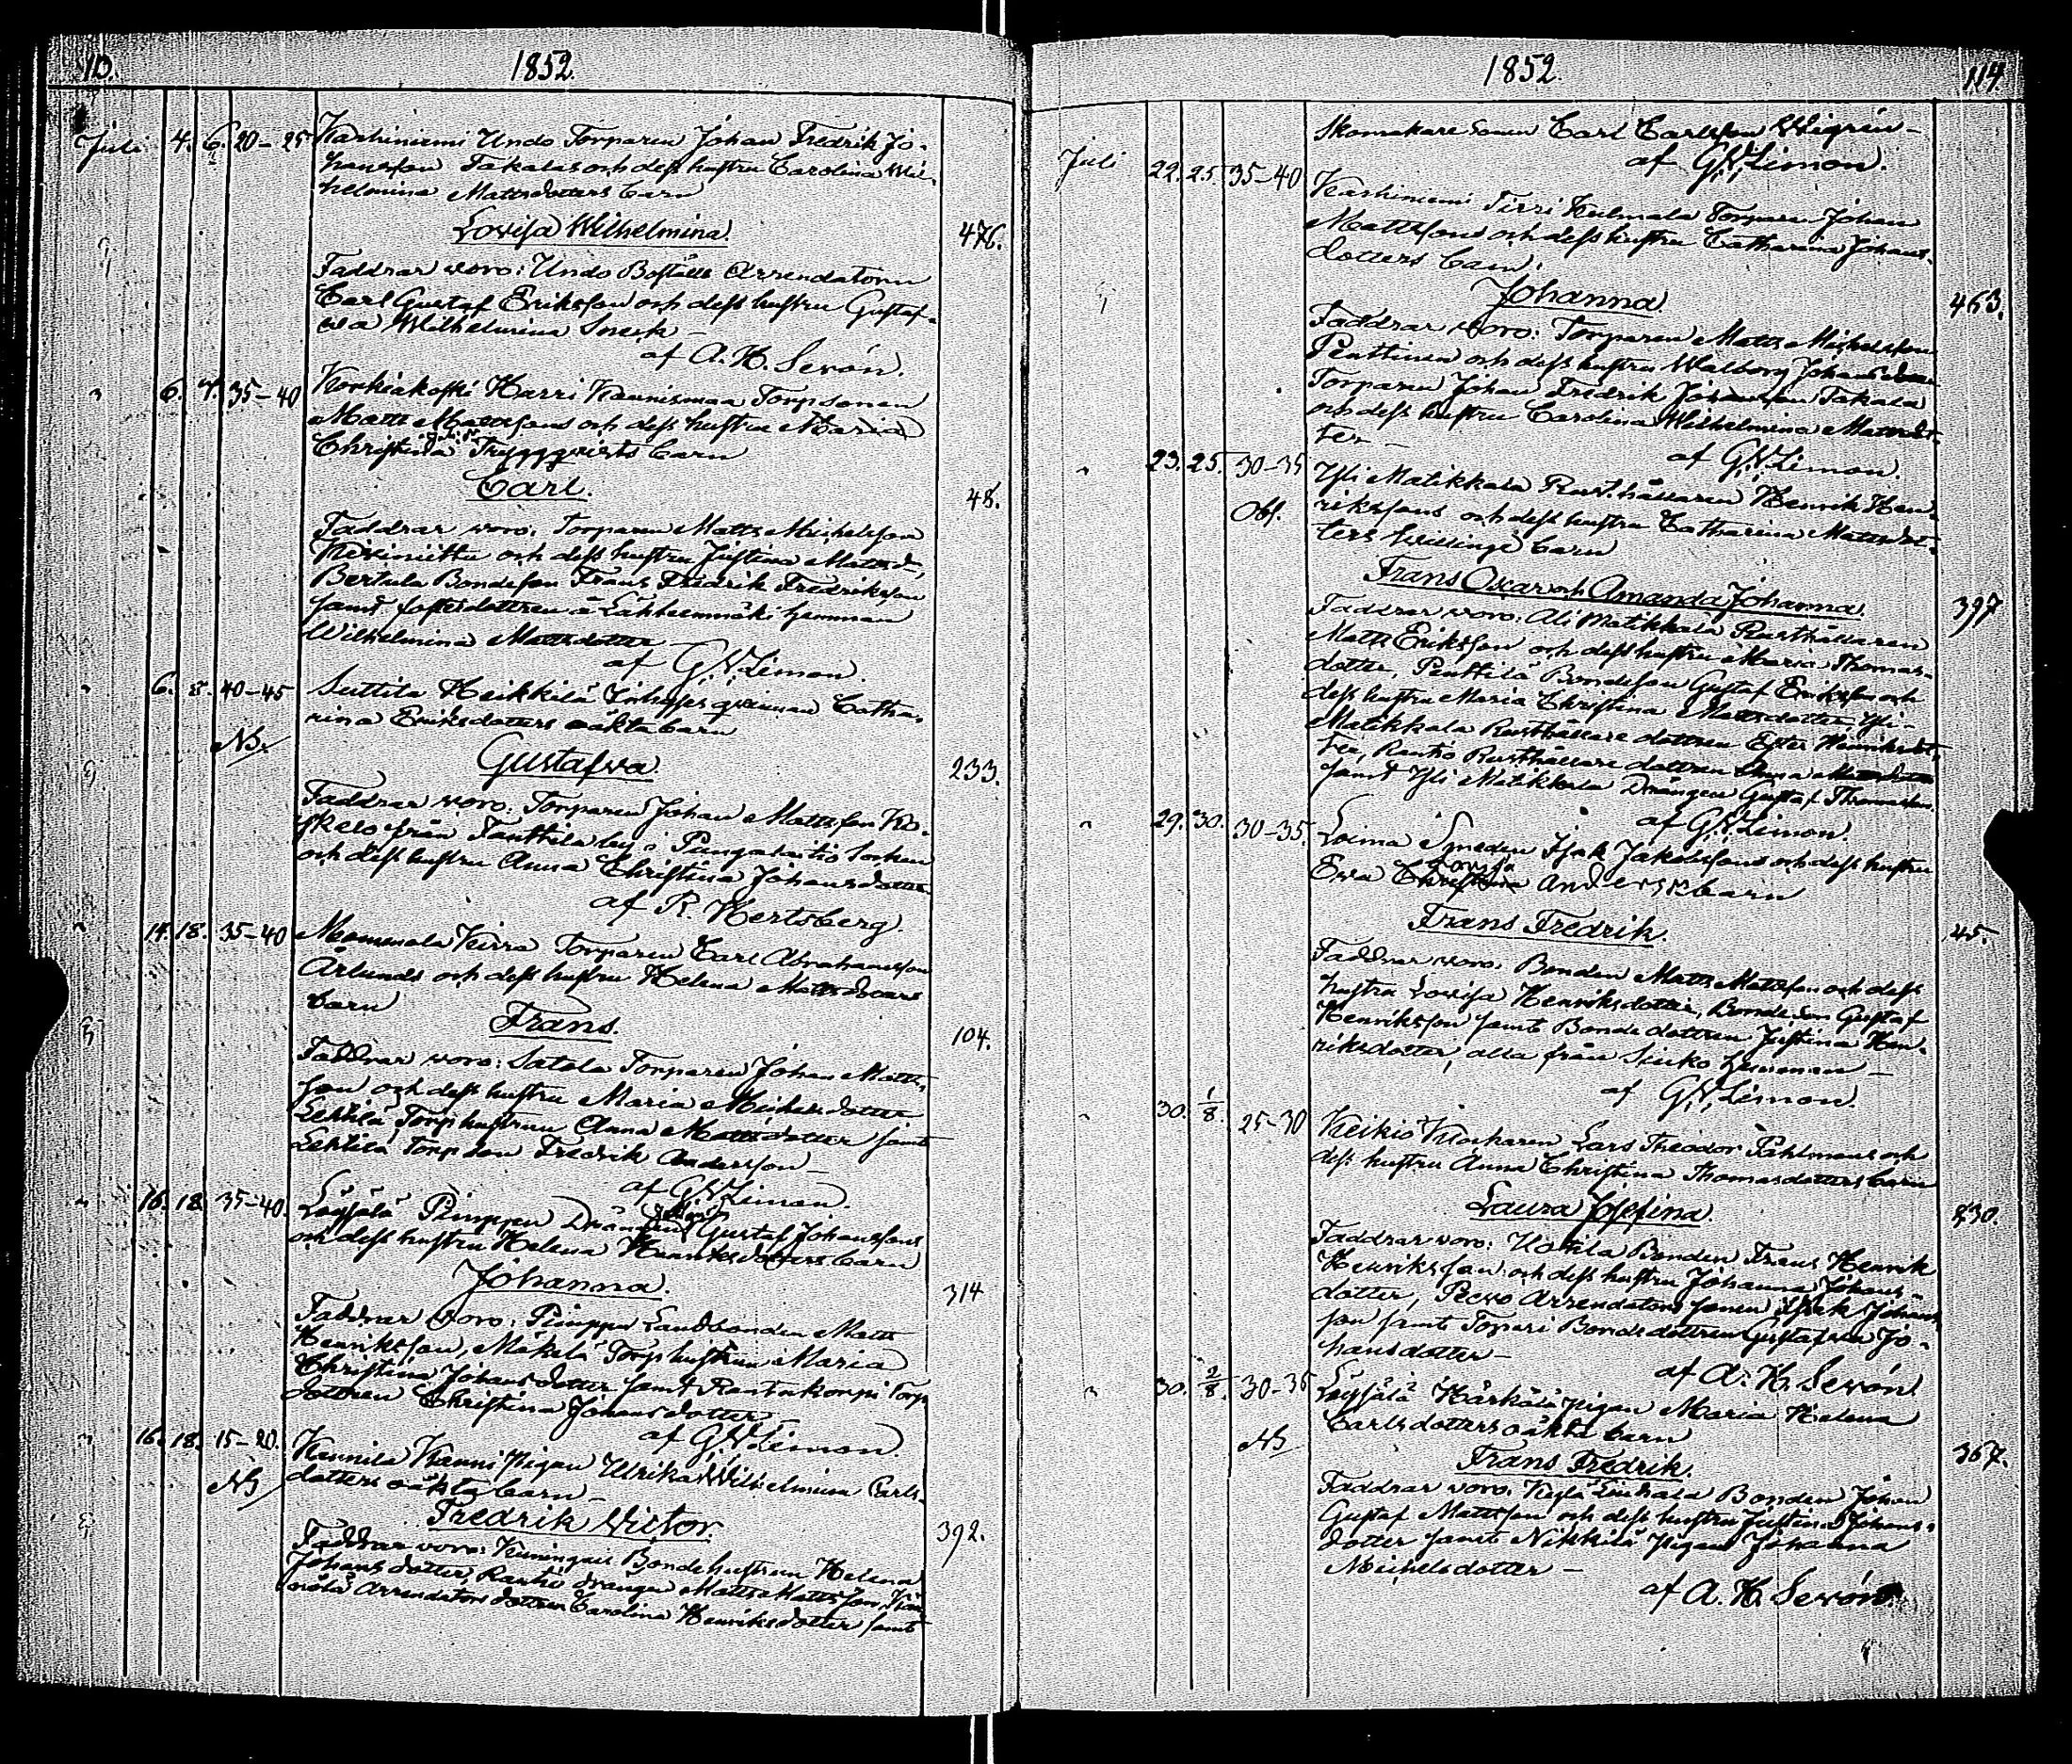 10.
1852.
Juli 4. 6. 20-25 Karhiniemi Undo Torparen Johan Fredrik Jo-
hansson Takalas och dess hustru Carolina Wil-
helmina Mattsdotters barn
Lovisa Wilhelmina. 476.
Faddrar voro: Undo Boställs Arrendatorn
Carl Gustaf Eriksson och dess hustru Gustaf-
wa Wilhelmina
af A. H. Sevón.
" 6. 7. 35-40 Korkiakoski Harri Kaunismaa Torpsonen
Matts Mattssons och dess hustru Maria
Christina Tryggqvists barn
Carl. 48.
Faddrar voro: Torparen Matts Michelsson
Kiviniittu och dess hustru Justina Mattsd.,
Bertula Bondeson Frans Fredrik Fredriksson
samt fosterdottren å Lähteenmäki hemman
Wilhelmina Mattsdotter
af G. V. Limon.
" 6. 8. 40-45 Suttila Heikkilä Inhyses qvinnan Catha-
rina Eriksdotters oäkta barn
NB.
Gustafva 233.
Faddrar voro: Torparen Johan Mattsson Ko-
skelo från Tanttila by i Pungalaitio Socken
och dess hustru Anna Christina Johansdotter
af R. Hertsberg.
" 14. 18. 35-40 Mommola Kirra Torparen Carl Abrahamsson
Arlunds och dess hustru Helena Mattsdotters
barn
Frans. 104.
Faddrar voro: Satola Torparen Johan Matts-
son och dess hustru Maria Michelsdotter
Lehtilä Torphustrun Anna Mattsdotter samt
Lehtilä Torpson Fredrik Andersson –
af G. V. Limon.
" 16. 18. 35-40. Löysälä Pimppu Drängen Gustaf Johanssons
och dess hustru Helena Henriksdotters barn
Johanna. 314
Faddrar voro: Pimppu Landbonden Matts
Henriksson, Mäkelä Torphustrun Maria
Christina Johansdotter samt Rantakorpi Torp
dottren Christina Johansdotter –
af G. V. Limon
" 16. 18. 15-20. Kannila Kanni Pigan Ulrika Wilhelmina Carls-
dotters oäkta barn –
NB
Fredrik Victor. 392.
Faddrar voro: Kuningais Bondehustrun Helena
Johansdotter, Rantio drängen Matts Mattsson,
Arrendators dottren Carolina Henriksdotter samt
1852.
114.
Skomakare sonen Carl Carlsson Wigrén –
af G. V. Limon.
Juli 22. 25. 35-40 Karhiniemi Tirri Kulmala Torpare Johan
Mattssons och dess hustru Catharina Johans-
dotters barn.
Johanna 463.
Faddrar voro: Torparen Matts Michelsson
Penttinen och dess hustru Walborg Johansdotter
Torparen Johan Fredrik Johansson Takala
och dess hustru Carolina Wilhelmina Mattsdot-
ter –
af G. V. Limon.
" 23. 25. 30-35 Yli Matikkala Rusthållaren Henrik Hen-
Obs. rikssons och dess hustru Catharina Mattsdot-
ters tvillinge barn
Frans Oscar och Amanda Johanna. 397
Faddrar voro: Ali Matikkala Rusthållaren
Matts Eriksson och dess hustru Maria Thomas-
dotter, Penttilä Bondeson Gustaf Eriksson och
dess hustru Maria Christina Mattsdotter Yli-
Matikkala Rusthållare dottren Ester Henriksdot-
ter, Rantio Rusthållare dottren Anna Mattsdotter
samt Yli Matikkala Drängen Gustaf Thomasson.
af G. V. Limon.
" 29. 30. 30-35. Loima Smeden Isak Jakobssons och dess hustru
Lovisa
Eva Christina Anders barn
Frans Fredrik. 45.
Faddrar voro: Bonden Matts Mattsson och dess
hustru Lovisa Henriksdotter, Bondeson Gustaf
Henriksson samt Bondedottren Justina Hen-
riksdotter, alla från Siuko hemman –
af G. V. Limon.
" 30. 1/8. 25-30 Keikiö Klockaren Lars Theodor Påhlmans och
dess hustru Anna Christina Thomasdotters barn
Laura Josefina. 230.
Faddrar voro: Uotila Bonden Frans Henrik
Henriksson och dess hustru Johanna Johans-
dotter, Arrendators sonen Isak Johans
son samt Topari Bondedottren Gustafva Jo-
hansdotter –
af A. H. Sevón
" 30. 2/8. 30-35 Löysälä Härkälä Pigan Maria Helena
Carlsdotters oäkta barn
NB
Frans Fredrik. 367.
Faddrar voro: Bonden Johan
Gustaf Mattsson och dess hustru Justina Johans-
dotter samt Nikkilä Pigan Johanna
Michelsdotter –
af A. H. Sevón.